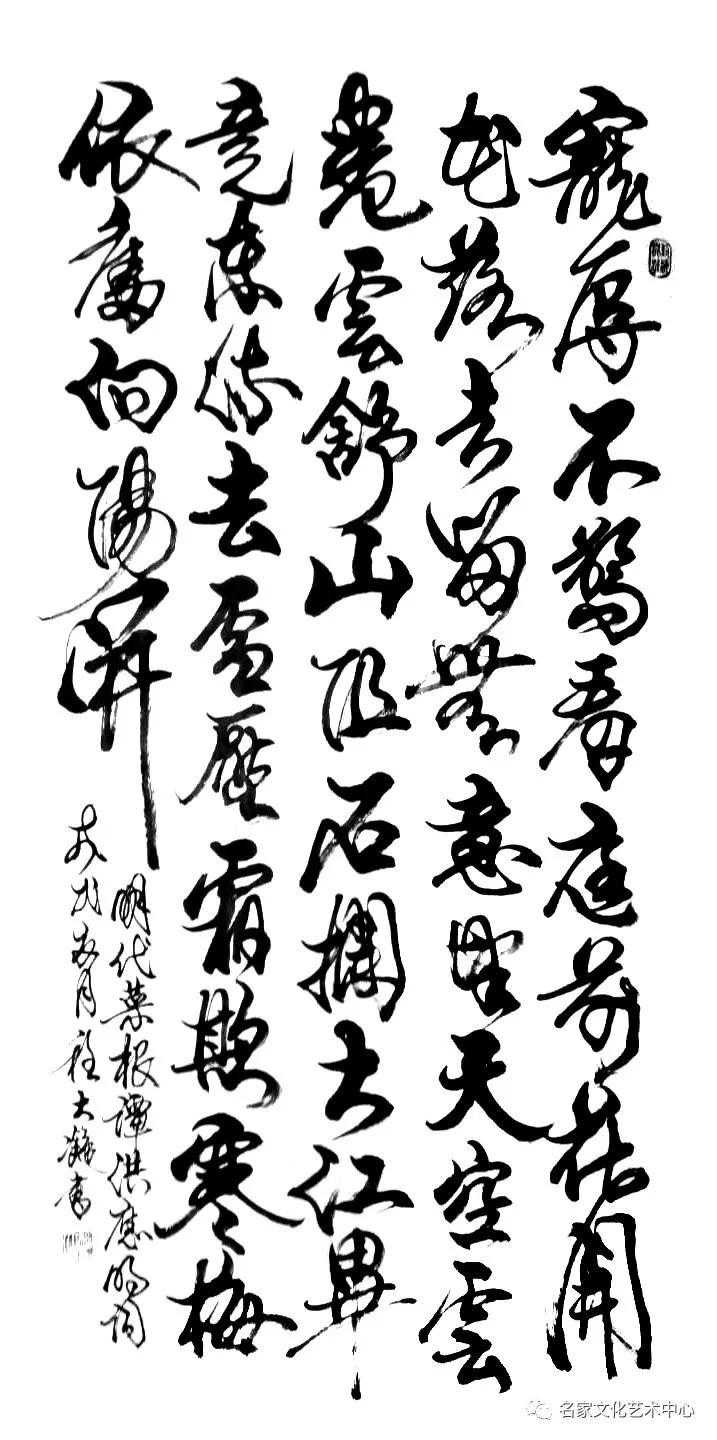 寵辱不驚看庭前花開
花落去留無意望天空雲
卷雲舒山阻石攔大江畢
竟東流去雪壓霜欺寒梅
依舊向陽開
明代菜根譚洪應明詞
月大書
名家文化艺术中心